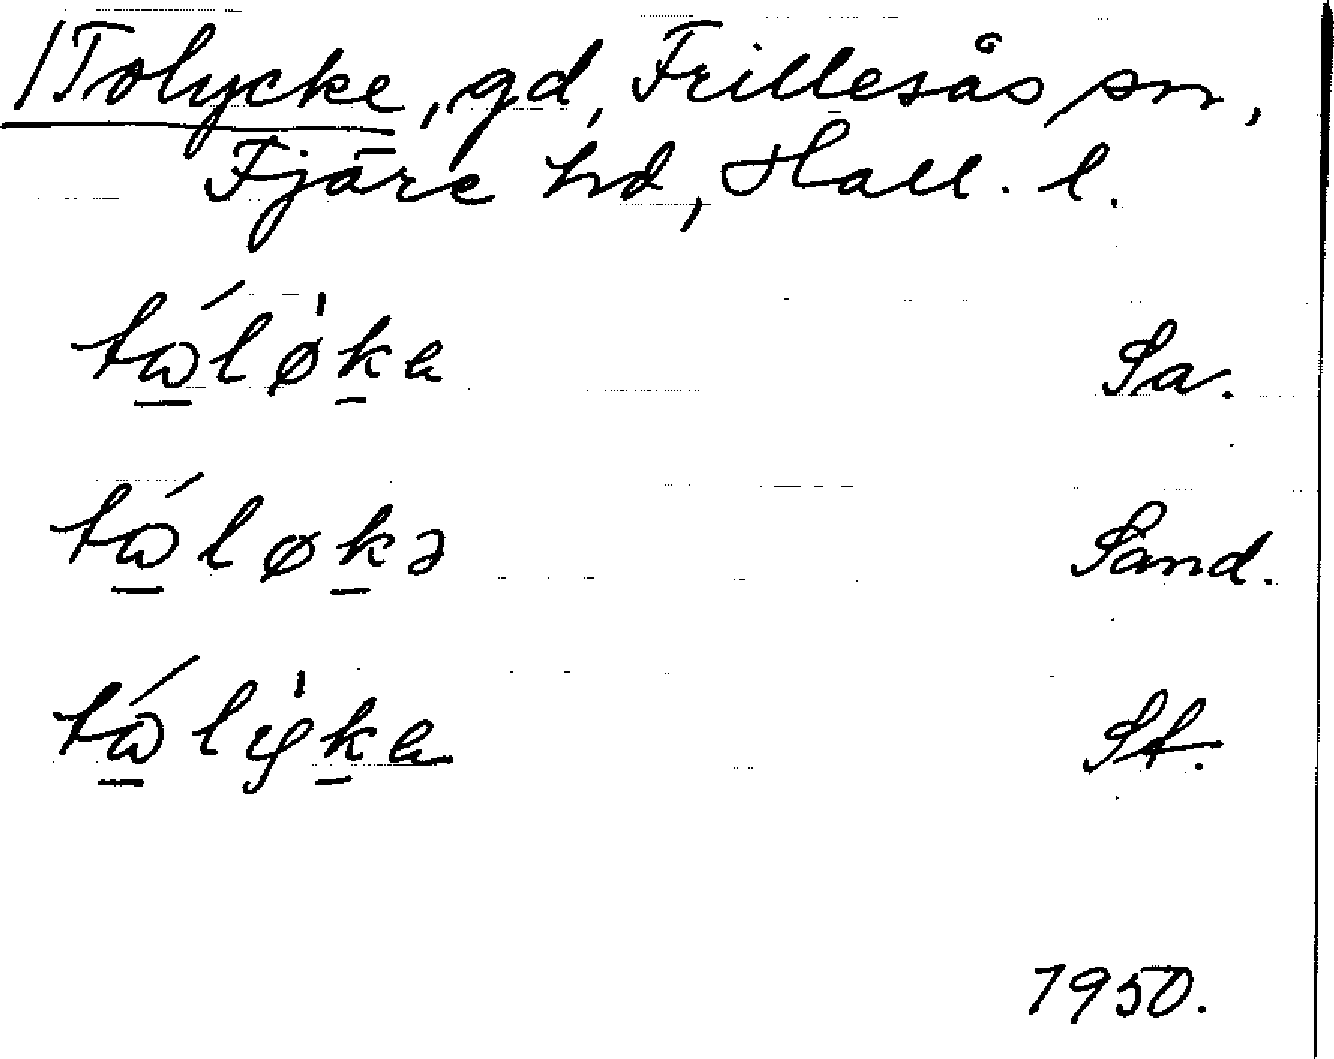 /Tolycke, gd, Frillesås sn,
Fjäre hd, Hall. l.
tώ̲lø̍k̲a Sa.
tώ̲løk̲ə Sand.
tώ̲ly̍k̲a St.
1950.